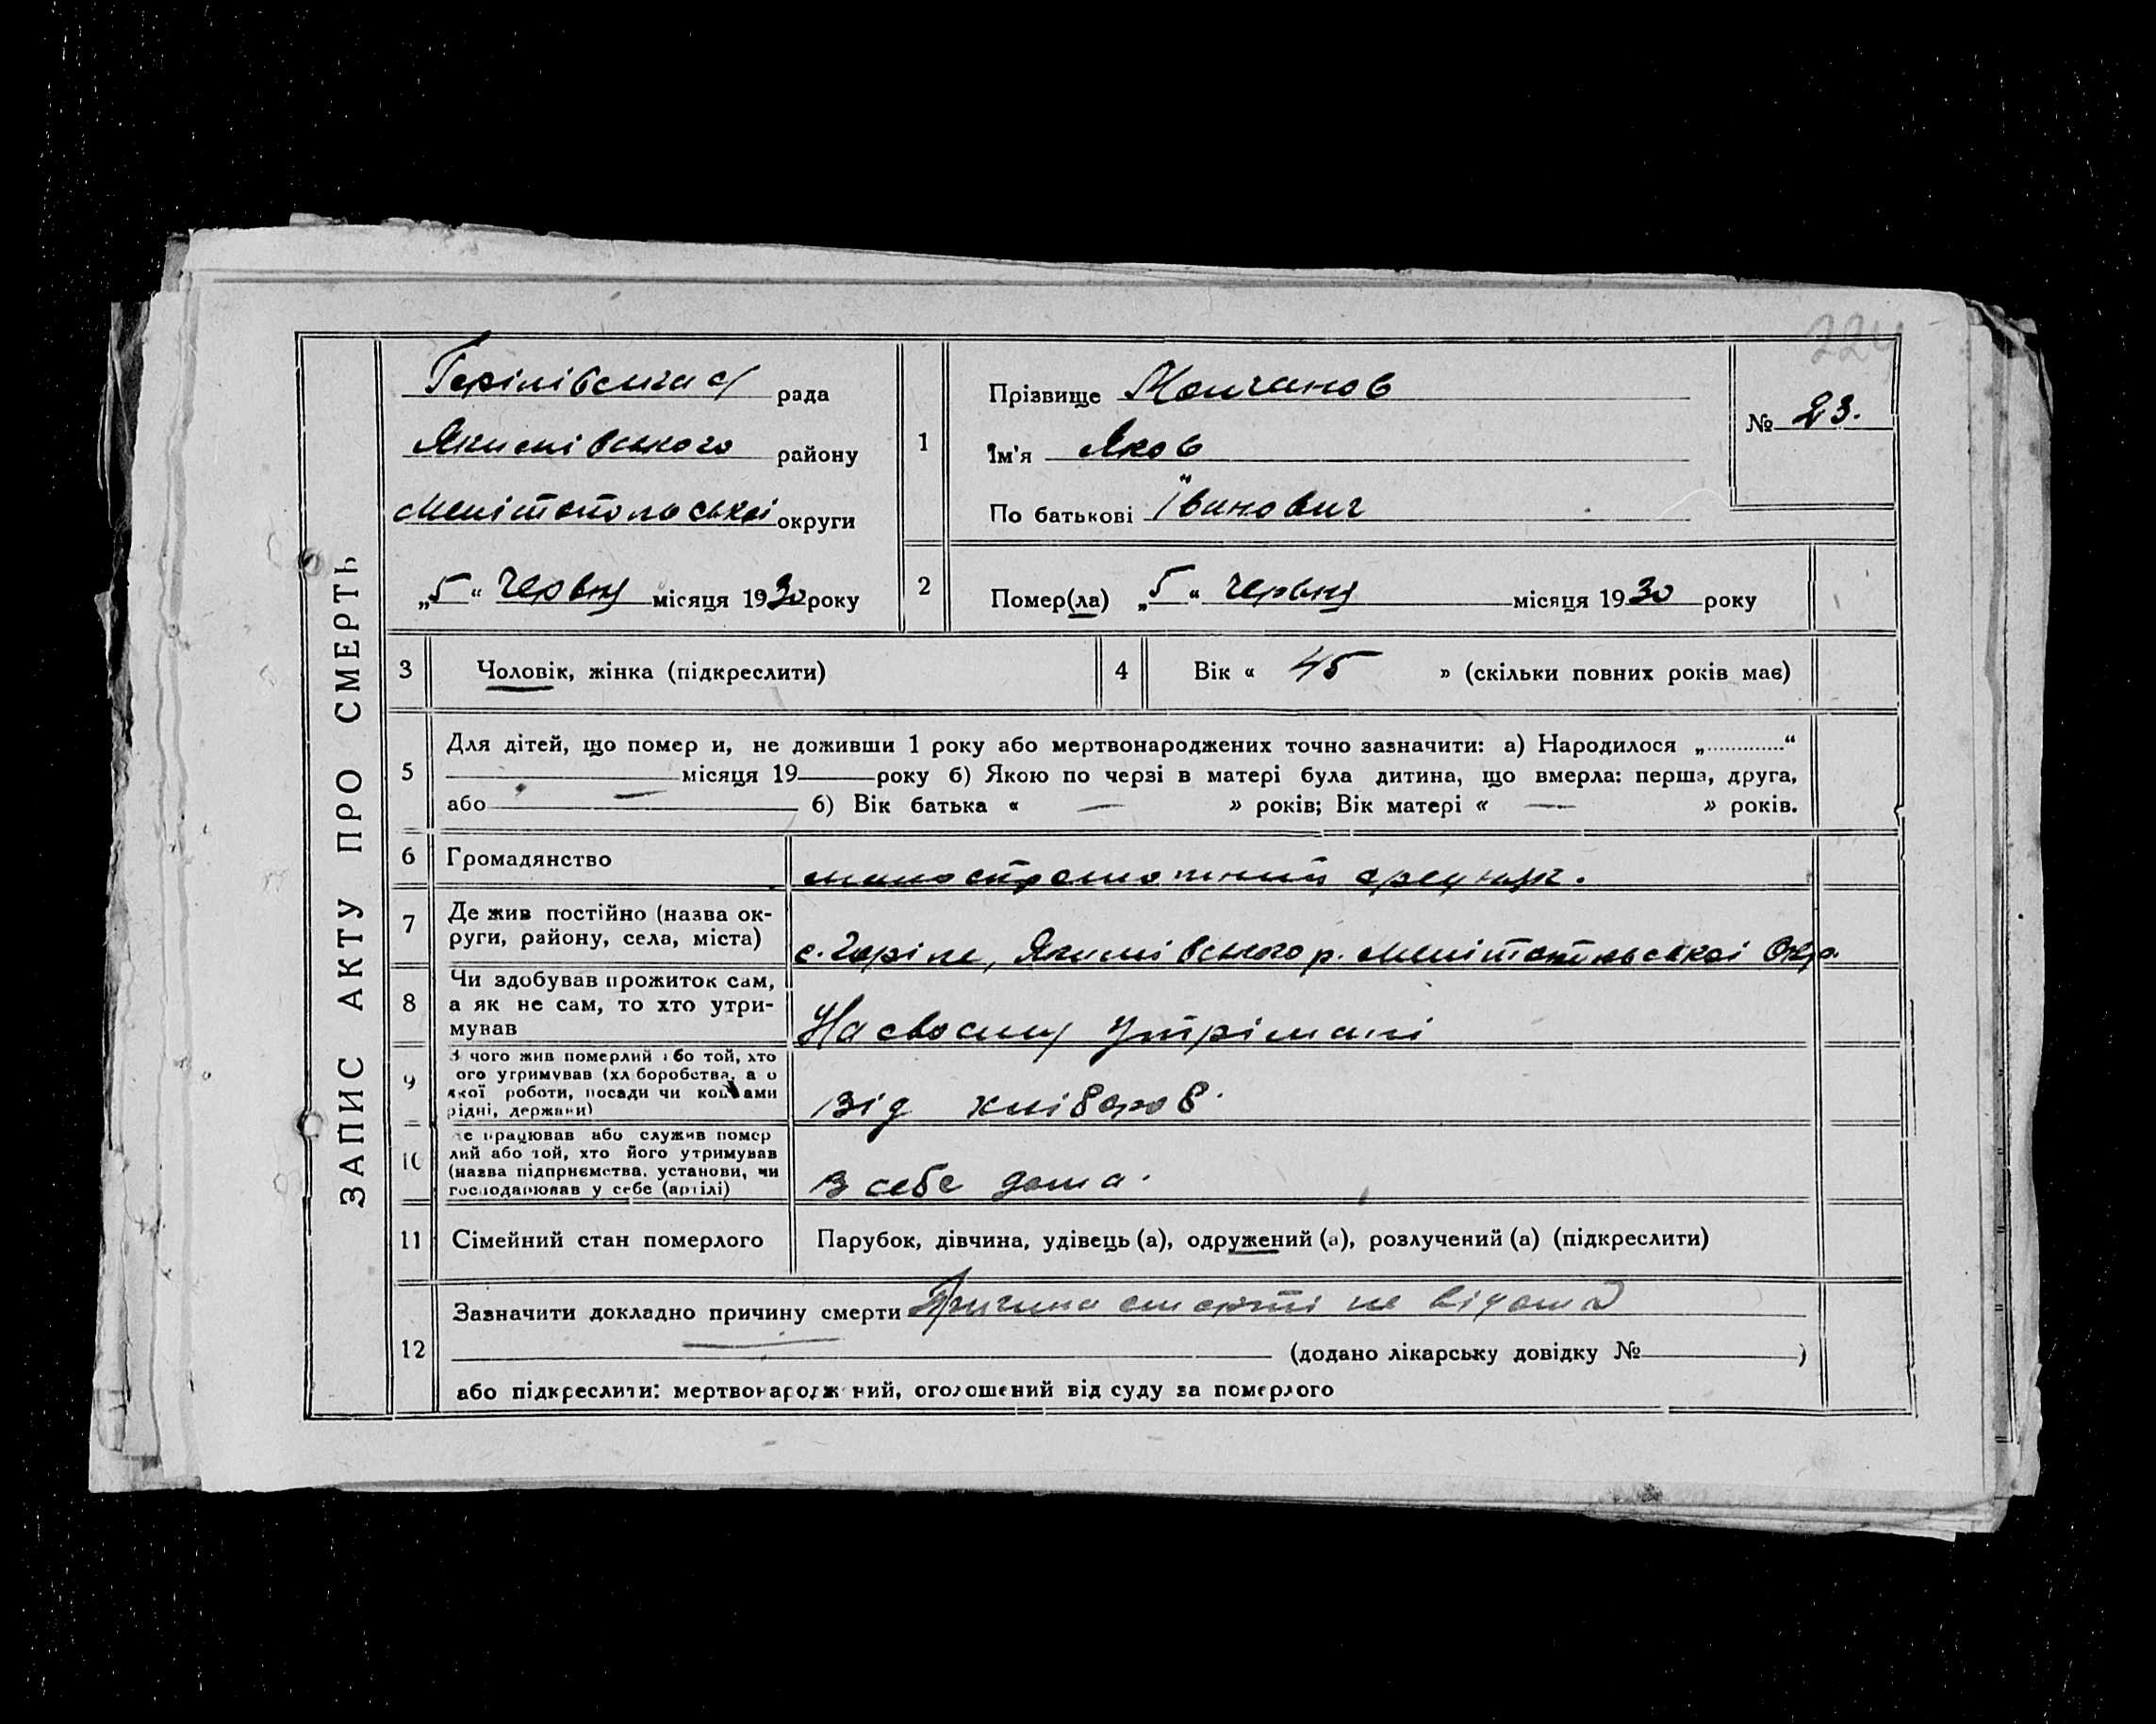 224
ЗАПИС АКТУ ПРО СМЕРТЬ
рада
Якимівського району
Мелітопольської округи
„5“ червня місяця 1930 року
1
Прізвище Молчанов
Ім'я Яков
По батькові Іванович
№ 23.
2
Помер(ла) „5“ червня місяця 1930 року
3 Чоловік, жінка (підкреслити)
4 Вік « 45 » (скільки повних років має)
5 Для дітей, що помер и, не доживши 1 року або мертвонароджених точно зазначити: а) Народилося „.............“
місяця 19 року б) Якою по черзі в матері була дитина, що вмерла: перша, друга,
або — б) Вік батька « — » років; Вік матері « — » років.
6 Громадянство
7 Де жив постійно (назва ок-
руги, району, села, міста)
с. Якимівського р. Мелітопольської Окр.
8 Чи здобував прожиток сам,
а як не сам, то хто утри-
мував
На своєму утрімані
9 З чого жив померлий або той, хто
ого утримував (хліборобства, а о
якої роботи, посади чи коштами
рідні, держави)
від хліборов.
10 де працював або служив помер
лий або той, хто його утримував
(назва підприємства, установи, чи
господарював у себе (артілі)
в себе дома.
11 Сімейний стан померлого
Парубок, дівчина, удівець (а), одружений (а), розлучений (а) (підкреслити)
12 Зазначити докладно причину смерти Причина смерті не відома
(додано лікарську довідку № )
або підкреслити: мертвонароджений, оголошений від суду за померлого